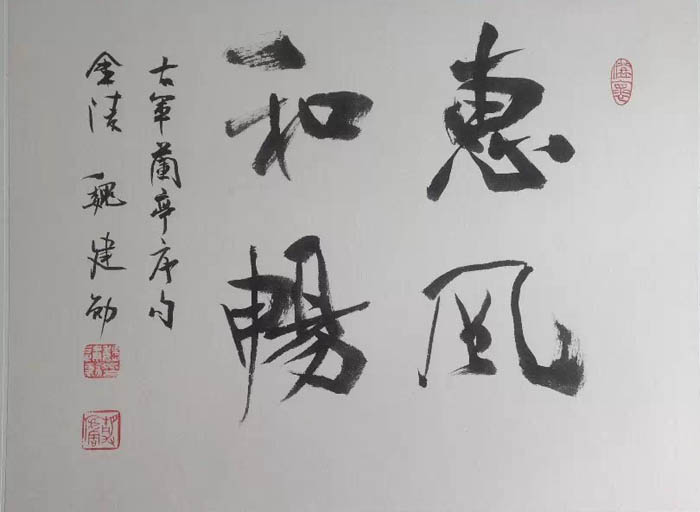 惠風
和暢
右軍蘭亭序句
金陵 魏建勋